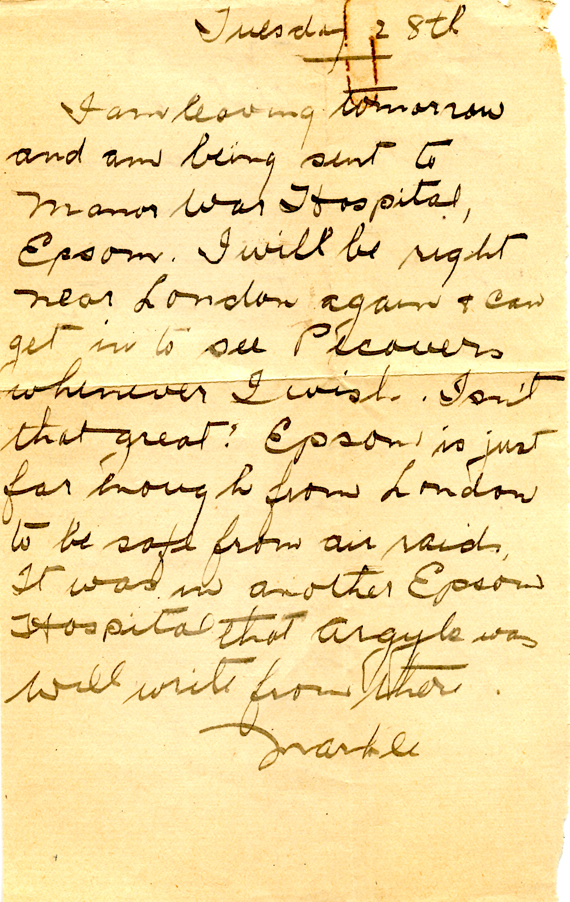 Tuesday 28th
I am leaving tomorrow
and am being sent to
Manor War Hospital,
Epsom. I will be right
near London again & can
get in to see Pecovers
whenever I wish. Isn't
that great? Epsom is just
far enough from London
to be safe from air raids,
It was in another Epsom
Hospital that Argyle was
Will write from there.
Markle